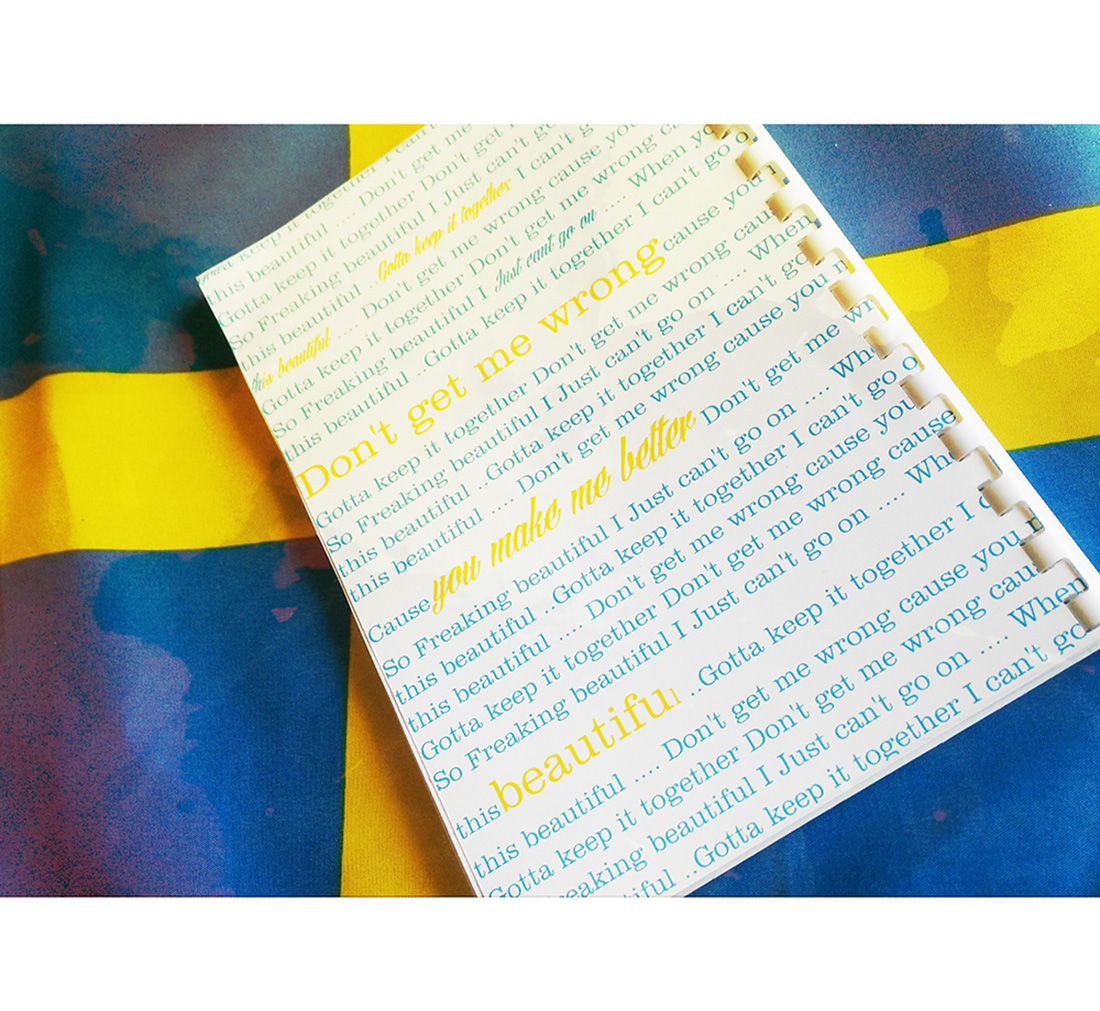 keep it together I can't
this beautiful .... Don't get me
Gotta keep it together Don't get
So Freaking beautiful I Just can't go
this beautiful ..Gotta keep it together I can't g
this beautiful .... Don't get me wrong cause you
Gotta keep it together Don't get me wrong c
So Freaking beautiful I Just cant go on .... When yo
this beautiful ..Gotta keep it together I can't go o
Don't get me wrong cause you
Gotta keep it together Don't get me wrong cau
So Freaking beautiful I Just can't go on .... When
this beautiful ..Gotta keep it together I can't go
this beautiful .... Don't get me wrong cause you m
Cause you make me better Don't get me wr
So Freaking beautiful I Just can't go on .... Wh
this beautiful ..Gotta keep it together I can't go o
this beautiful .... Don't get me wrong cause you
Gotta keep it together Don't get me wrong cause
So Freaking beautiful I Just can't go on .... Wh
this beautiful ..Gotta keep it together I c
this beautiful .... Don't get me wrong cause you
Gotta keep it together Don't get me wrong cau
reaking beautiful I Just can't go on .... When
tiful ..Gotta keep it together I can't go